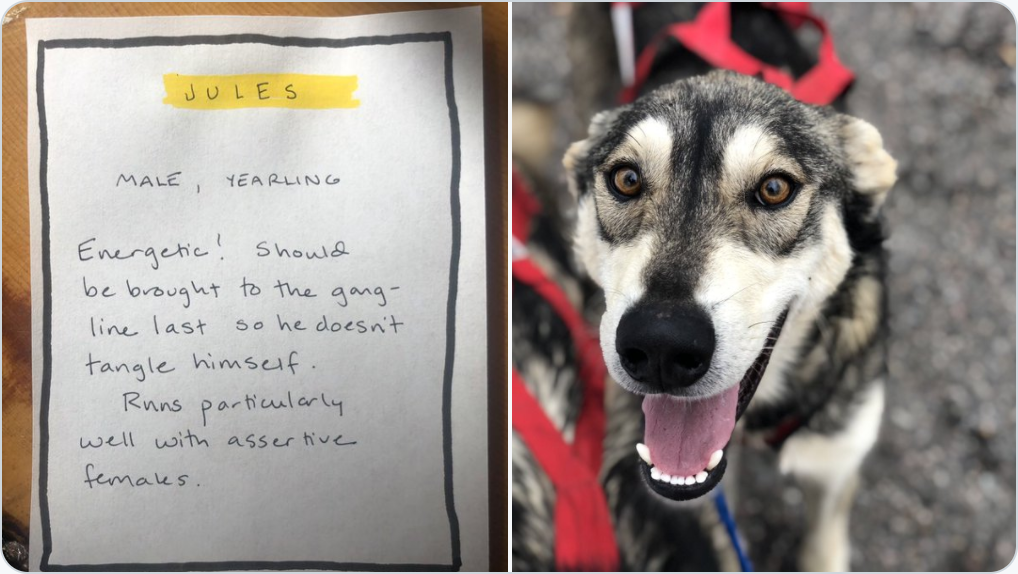 JULES
MALE, YEARLING
Energetic! Should
be brought to the gang-
line last so he doesn't
tangle himself.
Runs particularly
well with assertive
females.